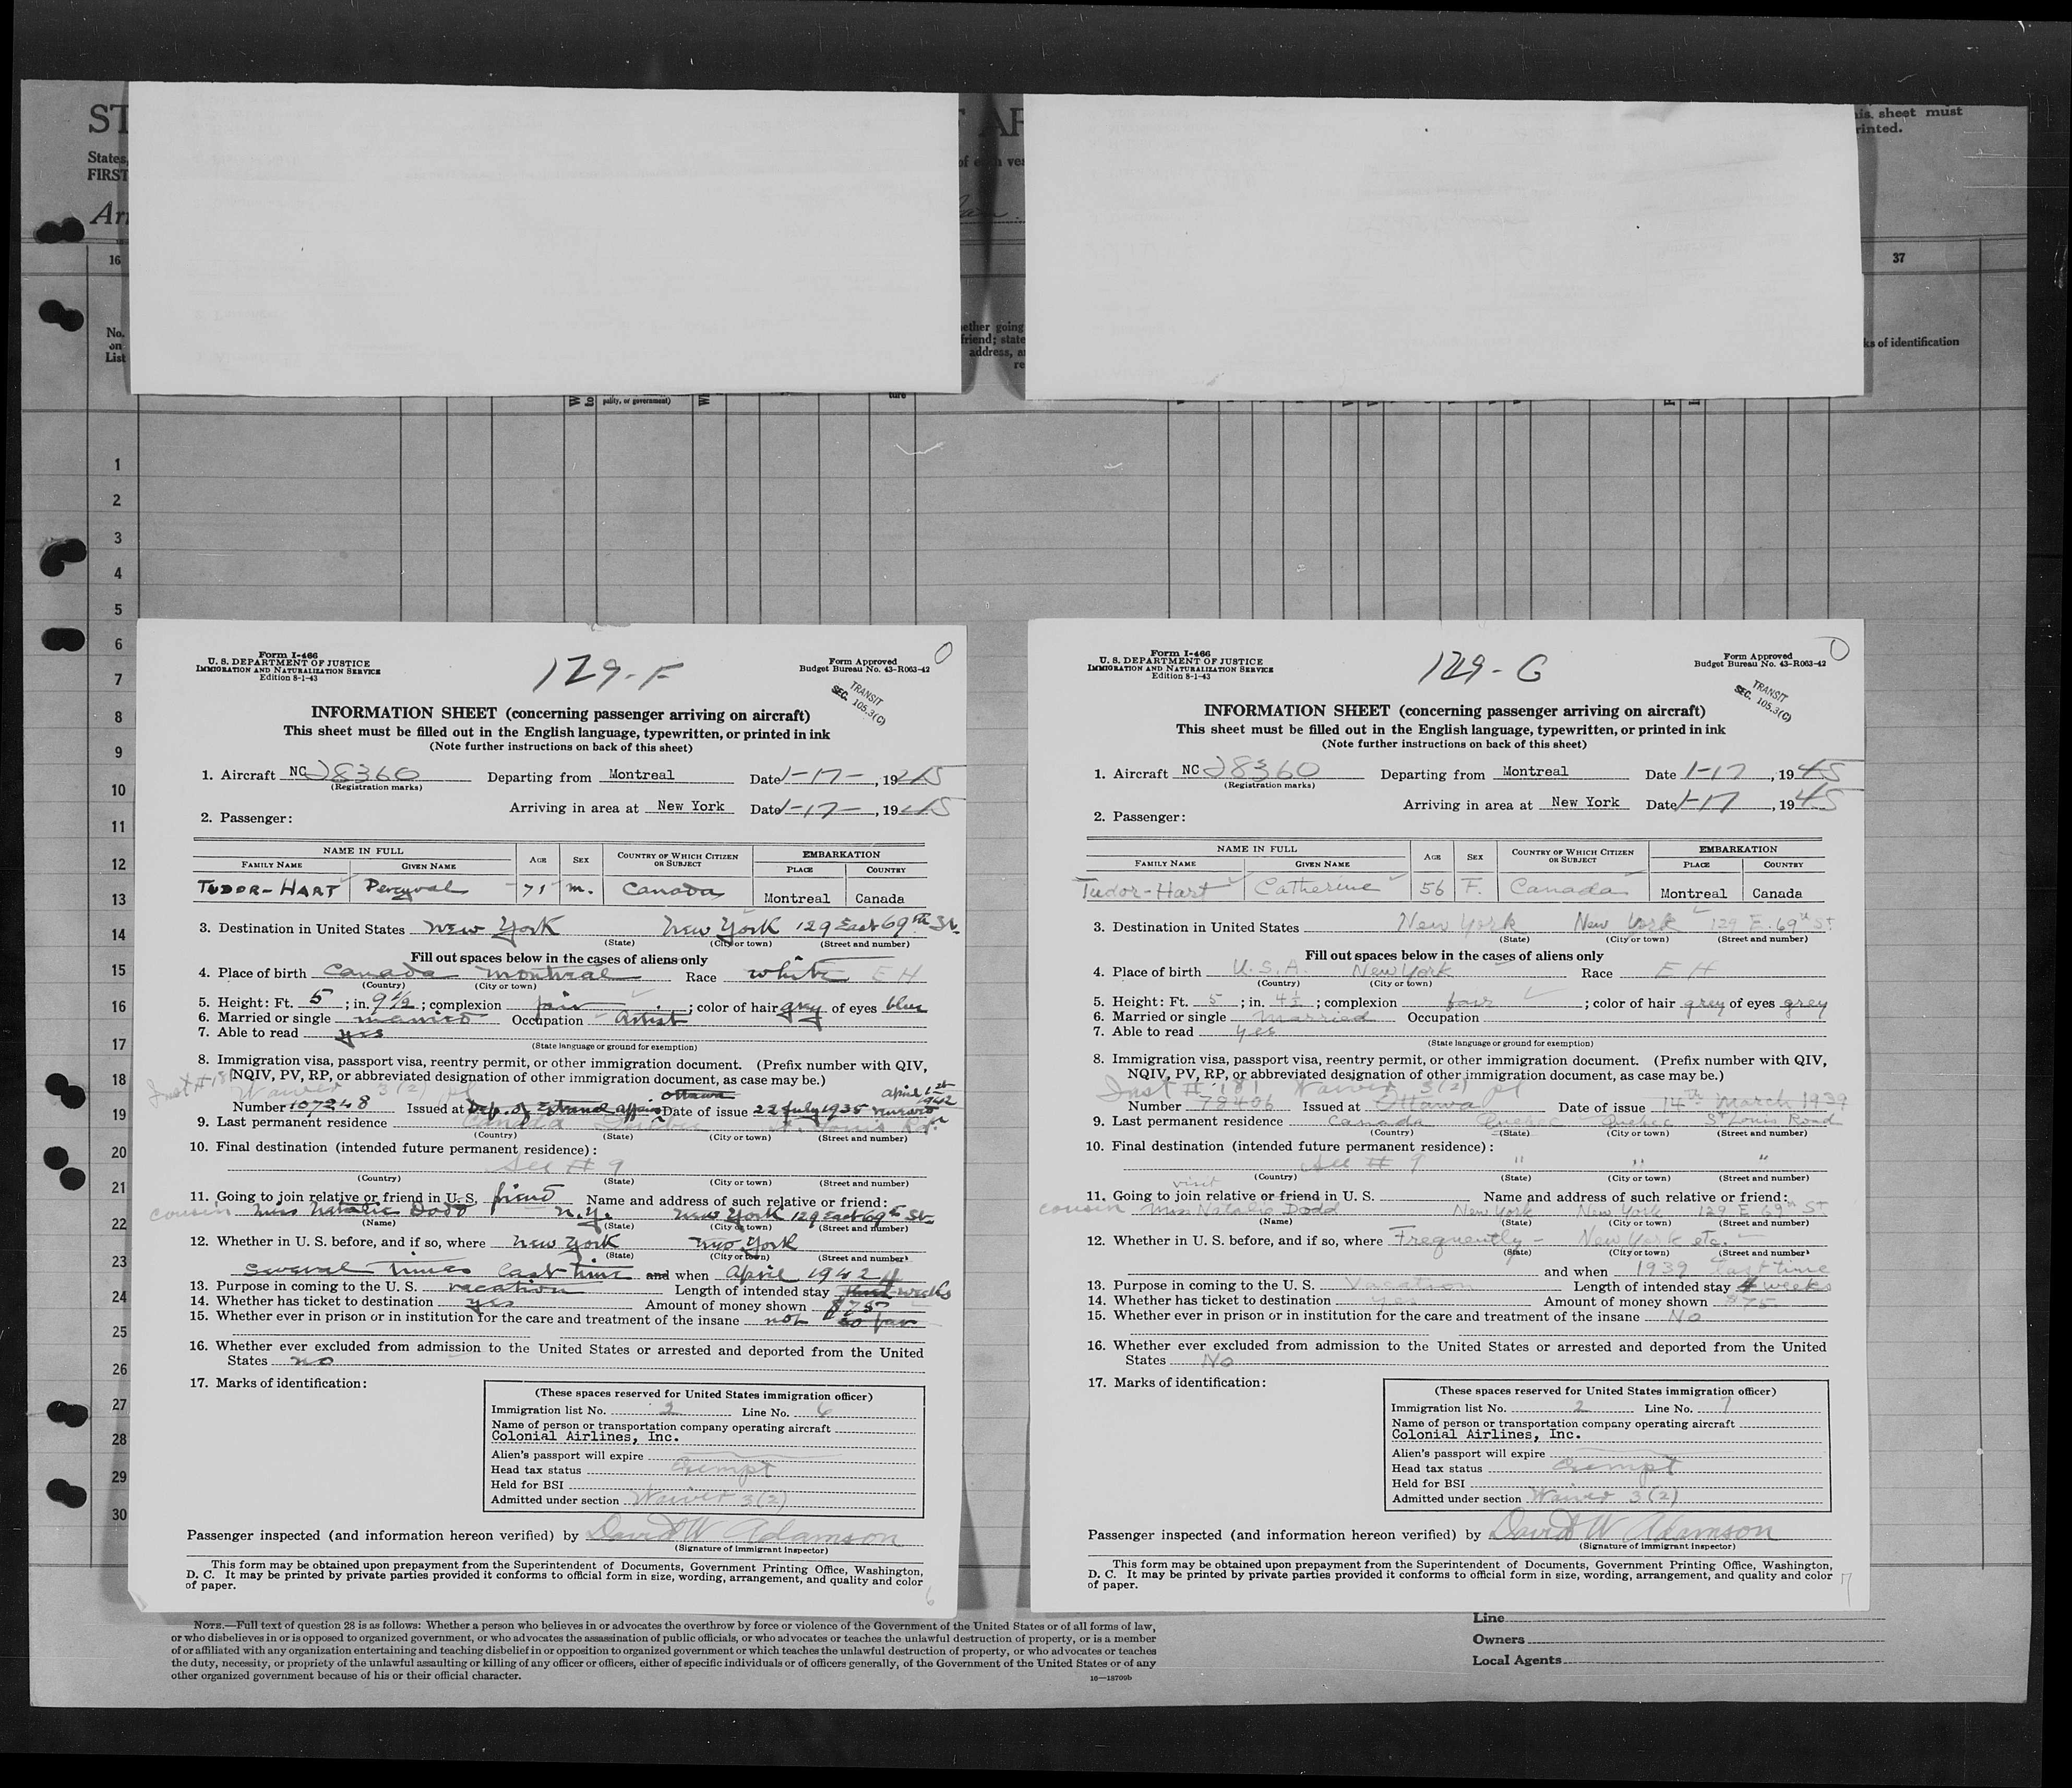 ST
States,
FIRST
Arr
of each ves
Jan.
his sheet must
rinted.
16
37
No.
on
List
ether going
friend; state
address, a
re
ks of identification
pality, or government)
ture
1
2
3
4
5
6
7
8
9
10
11
12
13
14
15
16
17
18
19
20
21
22
23
24
25
26
27
28
29
30
Form I-466
U. S. DEPARTMENT OF JUSTICE
IMMIGRATION AND NATURALIZATION SERVICE
Edition 8-1-43
129-F
Form Approved
Budget Bureau No. 43-R063-42
TRANSIT
SEC. 105.3(C)
INFORMATION SHEET (concerning passenger arriving on aircraft)
This sheet must be filled out in the English language, typewritten, or printed in ink
(Note further instructions on back of this sheet)
1. Aircraft NC 28360 Departing from Montreal Date 1-17-, 1945
(Registration marks)
Arriving in area at New York Date 1-17-, 1945
2. Passenger:
NAME IN FULL
FAMILY NAME GIVEN NAME AGE SEX COUNTRY OF WHICH CITIZEN OR SUBJECT EMBARKATION
PLACE COUNTRY
TUDOR-HART Percyval 71 m. Canada Montreal Canada
3. Destination in United States New York New York 129 East 69th St.
(State) (City or town) (Street and number)
Fill out spaces below in the cases of aliens only
4. Place of birth Canada Montreal Race white E H
(Country) (City or town)
5. Height: Ft. 5; in. 9 1/2; complexion fair; color of hair grey of eyes blue
6. Married or single married Occupation Artist
7. Able to read yes
(State language or ground for exemption)
8. Immigration visa, passport visa, reentry permit, or other immigration document. (Prefix number with QIV,
NQIV, PV, RP, or abbreviated designation of other immigration document, as case may be.)
Inst # 181 Waiver 3(2) pt
Ottawa April 1942
Number 107248 Issued at Dep. of External affairs Date of issue 22 July 1935
9. Last permanent residence Canada Quebec St. Louis Rd.
(Country) (State) (City or town) (Street and number)
10. Final destination (intended future permanent residence):
See # 9
(Country) (State) (City or town) (Street and number)
11. Going to join relative or friend in U. S. friend Name and address of such relative or friend:
cousin Miss Natalie Dodd N.Y. New York 129 East 69th St.
(Name) (State) (City or town) (Street and number)
12. Whether in U. S. before, and if so, where New York New York
(State) (City or town) (Street and number)
Several times last time and when April 1942
13. Purpose in coming to the U. S. vacation Length of intended stay 4 weeks
14. Whether has ticket to destination yes Amount of money shown $75
15. Whether ever in prison or in institution for the care and treatment of the insane not so far
16. Whether ever excluded from admission to the United States or arrested and deported from the United
States no
17. Marks of identification:
(These spaces reserved for United States immigration officer)
Immigration list No. 2 Line No. 6
Name of person or transportation company operating aircraft
Colonial Airlines, Inc.
Alien's passport will expire
Head tax status Exempt
Held for BSI
Admitted under section Waiver 3(2)
Passenger inspected (and information hereon verified) by David W Adamson
(Signature of immigrant inspector)
This form may be obtained upon prepayment from the Superintendent of Documents, Government Printing Office, Washington,
D. C. It may be printed by private parties provided it conforms to official form in size, wording, arrangement, and quality and color
of paper.
6
Form I-466
U. S. DEPARTMENT OF JUSTICE
IMMIGRATION AND NATURALIZATION SERVICE
Edition 8-1-43
129-G
Form Approved
Budget Bureau No. 43-R063-42
TRANSIT
SEC. 105.3(C)
INFORMATION SHEET (concerning passenger arriving on aircraft)
This sheet must be filled out in the English language, typewritten, or printed in ink
(Note further instructions on back of this sheet)
1. Aircraft NC 28360 Departing from Montreal Date 1-17, 1945
(Registration marks)
Arriving in area at New York Date 1-17, 1945
2. Passenger:
NAME IN FULL
FAMILY NAME GIVEN NAME AGE SEX COUNTRY OF WHICH CITIZEN OR SUBJECT EMBARKATION
PLACE COUNTRY
Tudor-Hart Catherine 56 F. Canada Montreal Canada
3. Destination in United States New York New York 129 E. 69th St.
(State) (City or town) (Street and number)
Fill out spaces below in the cases of aliens only
4. Place of birth U.S.A. New York Race E H
(Country) (City or town)
5. Height: Ft. 5; in. 4 1/2; complexion fair; color of hair grey of eyes grey
6. Married or single Married Occupation
7. Able to read yes
(State language or ground for exemption)
8. Immigration visa, passport visa, reentry permit, or other immigration document. (Prefix number with QIV,
NQIV, PV, RP, or abbreviated designation of other immigration document, as case may be.)
Inst # 181 Waiver 3(2) pt
Number 78406 Issued at Ottawa Date of issue 14th March 1939
9. Last permanent residence Canada Quebec Quebec St Louis Road
(Country) (State) (City or town) (Street and number)
10. Final destination (intended future permanent residence):
See # 9 " " "
(Country) (State) (City or town) (Street and number)
visit
11. Going to join relative or friend in U. S. Name and address of such relative or friend:
cousin Miss Natalie Dodd New York New York 129 E 69th St
(Name) (State) (City or town) (Street and number)
12. Whether in U. S. before, and if so, where Frequently - New York etc.
(State) (City or town) (Street and number)
and when 1939 last time
13. Purpose in coming to the U. S. Vacation Length of intended stay 4 weeks
14. Whether has ticket to destination yes Amount of money shown $75
15. Whether ever in prison or in institution for the care and treatment of the insane No
16. Whether ever excluded from admission to the United States or arrested and deported from the United
States No
17. Marks of identification:
(These spaces reserved for United States immigration officer)
Immigration list No. 2 Line No. 7
Name of person or transportation company operating aircraft
Colonial Airlines, Inc.
Alien's passport will expire
Head tax status Exempt
Held for BSI
Admitted under section Waiver 3(2)
Passenger inspected (and information hereon verified) by David W Adamson
(Signature of immigrant inspector)
This form may be obtained upon prepayment from the Superintendent of Documents, Government Printing Office, Washington,
D. C. It may be printed by private parties provided it conforms to official form in size, wording, arrangement, and quality and color
of paper.
7
NOTE.—Full text of question 28 is as follows: Whether a person who believes in or advocates the overthrow by force or violence of the Government of the United States or of all forms of law,
or who disbelieves in or is opposed to organized government, or who advocates the assassination of public officials, or who advocates or teaches the unlawful destruction of property, or is a member
of or affiliated with any organization entertaining and teaching disbelief in or opposition to organized government or which teaches the unlawful destruction of property, or who advocates or teaches
the duty, necessity, or propriety of the unlawful assaulting or killing of any officer or officers, either of specific individuals or of officers generally, of the Government of the United States or of any
other organized government because of his or their official character.
16—18709b
Line
Owners
Local Agents